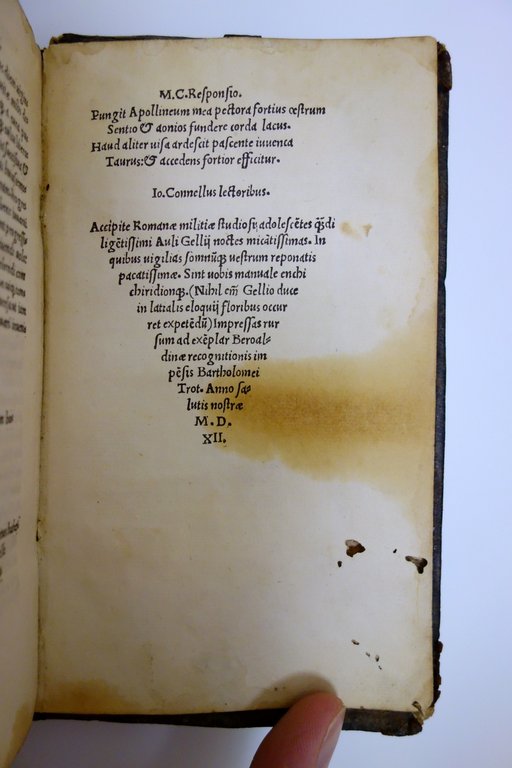 M.C. Responsio.
Pungit Apollineum mea pectora fortius œstrum
Sentio & aonios fundere corda lacus.
Haud aliter uisa ardescit pascente iuuenca
Taurus: & accedens fortior efficitur.
Io. Connellus lectoribus.
Accipite Romanæ militiæ studiosi, adolescẽtes q̃di
ligẽtissimi Auli Gellij noctes micãtissimas. In
quibus uigilias somnũq; uestrum reponatis
pacatissimæ. Sint uobis manuale enchi
chiridionq;. (Nihil em̃ Gellio duce
in latialis eloquij floribus occur
ret expetẽdũ) Impressas rur
sum ad exẽplar Beroal-
dinæ recognitionis im
pẽsis Bartholomei
Trot. Anno sa-
lutis nostræ
M.D.
XII.